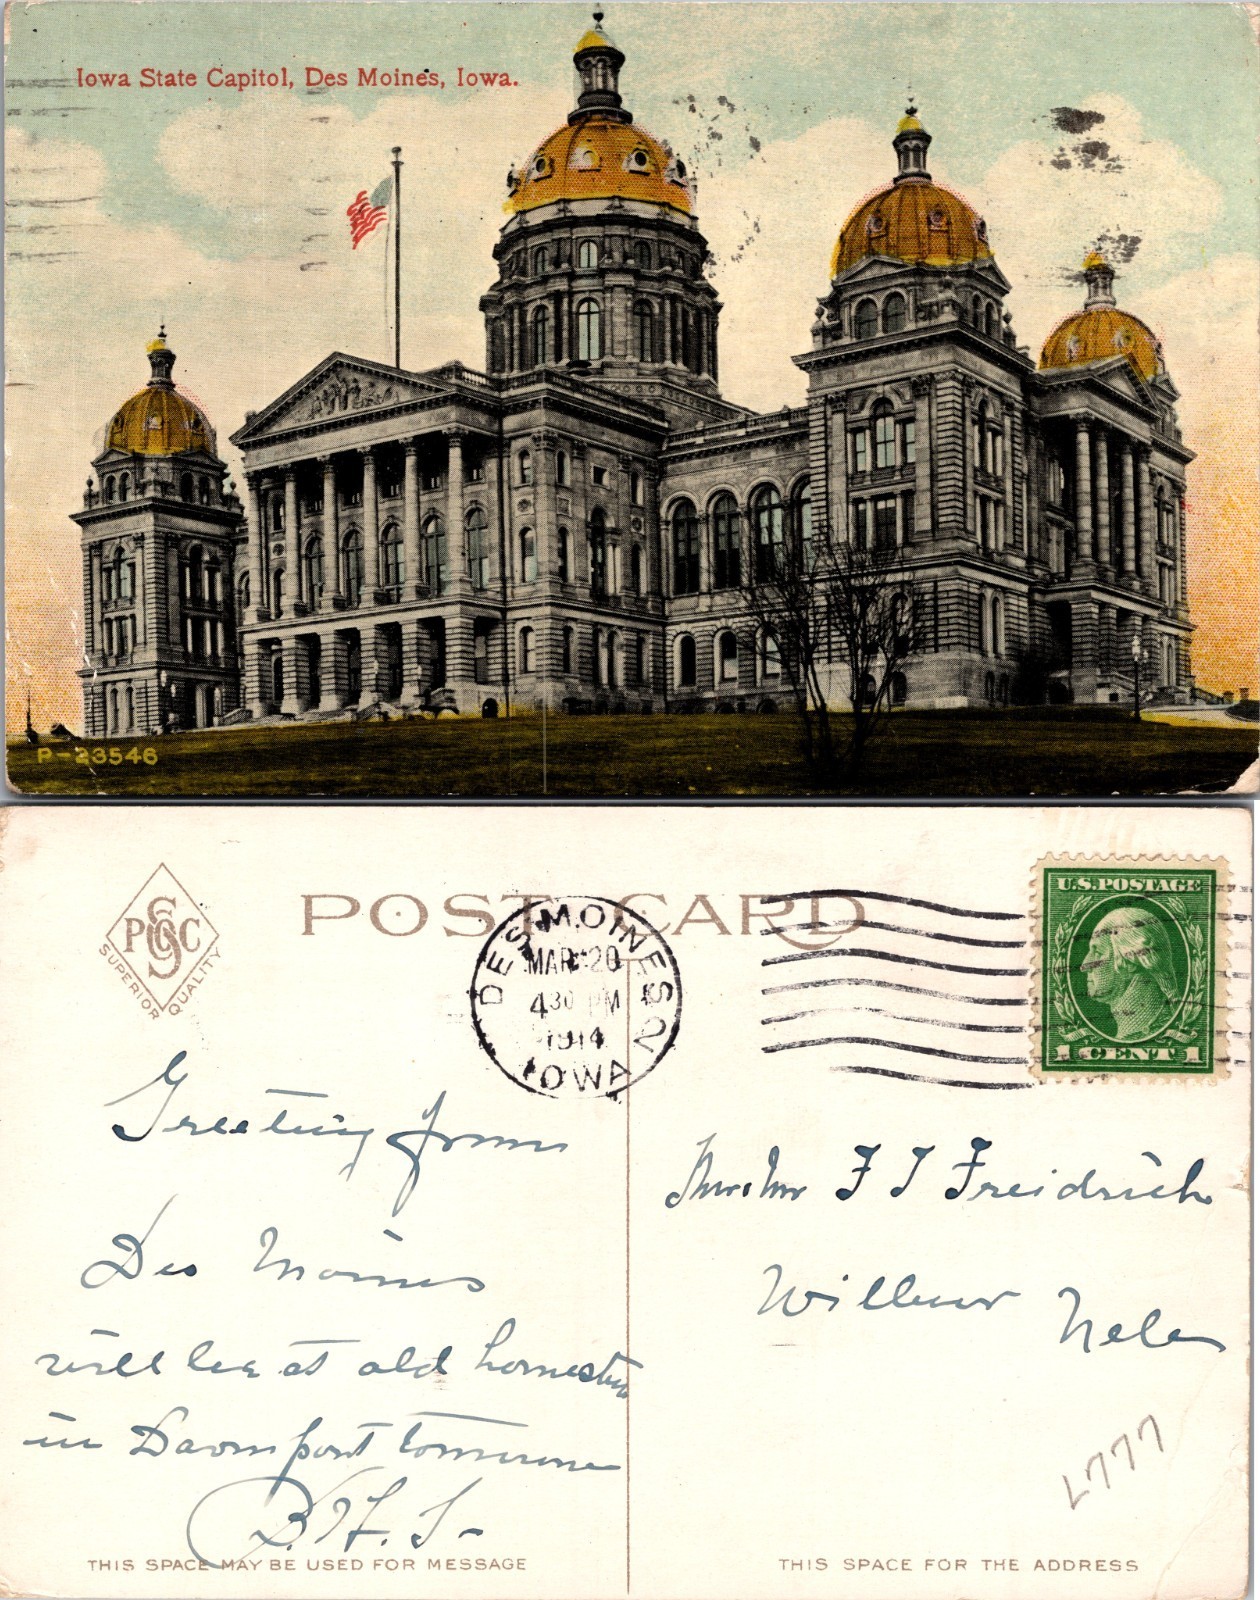 Iowa State Capitol, Des Moines, Iowa.
P-23546
POST CARD
PSCCo
SUPERIOR QUALITY
DES MOINES
MAR 20
4 30 PM
1914
IOWA
U.S. POSTAGE
1 CENT 1
Greeting from
Des Moines
will be at old
in Davenport
B. H. J-
F J Freidrich
Wilbur Nebr
L777
THIS SPACE MAY BE USED FOR MESSAGE
THIS SPACE FOR THE ADDRESS